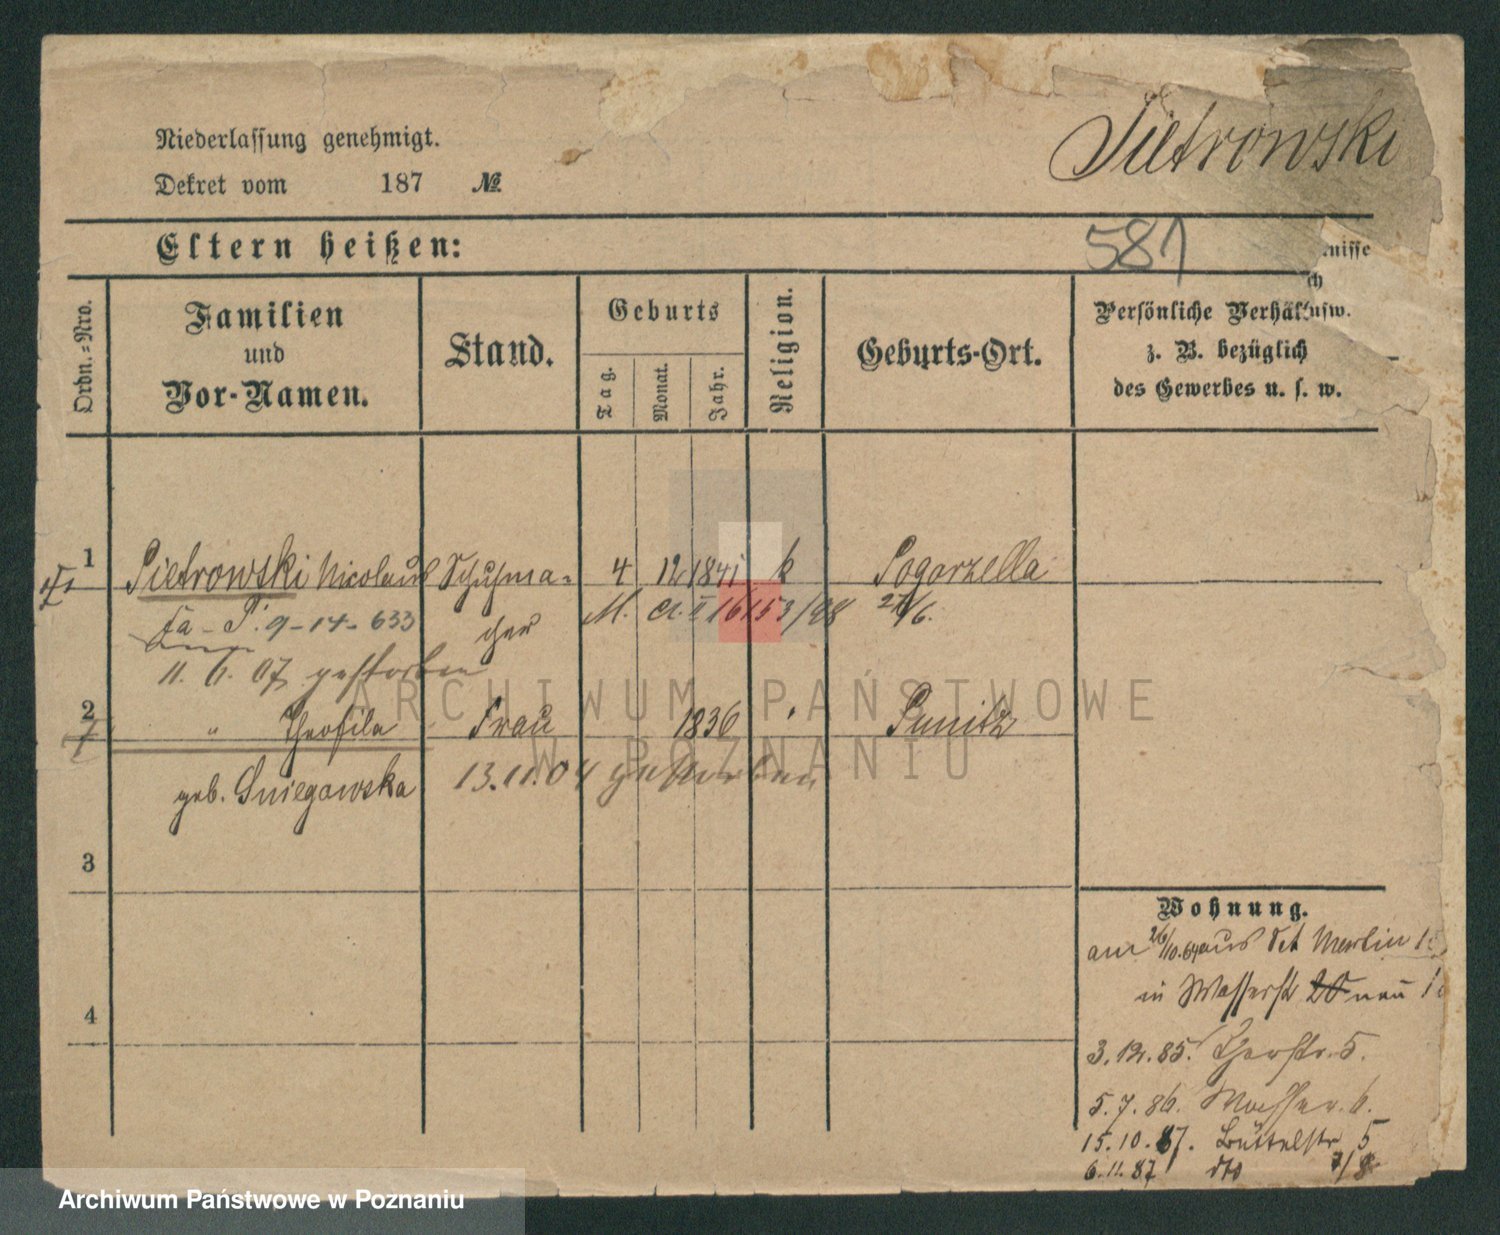 Niederlassung genehmigt.
Dekret vom 187 №
Pietrowski
Eltern heißen:
581
nisse
ch
Ordn.-Nro.
Familien
und
Vor-Namen.
Stand.
Geburts
Tag.
Monat.
Jahr.
Religion.
Geburts-Ort.
Persönliche Verhält usw.
z. B. bezüglich
des Gewerbes u. s. w.
1 Pietrowski Nicolaus Schuhma= 4 12 1841 k Pogorzella
Fa - P. 9-14-633 cher M. a. II 16153/98 27/6.
11. 6. 07 gestorben
2 " Theofila Frau 1836 Punitz
geb. Sniegowska 13.11.04 gestorben
3
4
Wohnung.
am 26/10.64 aus Merlin
in Wasserstr 20 neu
3.12.85. 5.
5.7.86. Wasser. 6.
15.10.87. Büttelstr 5
6.11.87 dto 7/8
ARCHIWUM PAŃSTWOWE
W POZNANIU
Archiwum Państwowe w Poznaniu